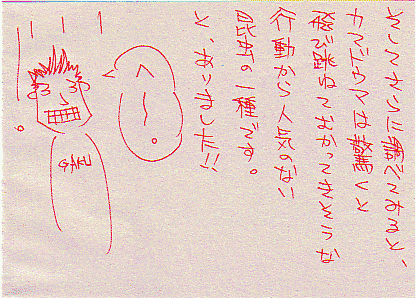 そしてさらに調べてみると、
カマドウマは驚くと
跳ねて
行動から人気のない
昆虫の一種です。
と、ありました!!
へ〜。
GAKU